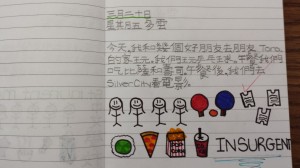 三月二十日
星期五 多雲
今天,我和幾個好朋友去朋友 Tara
的家玩。我們玩乒乓球。午餐我們
吃比薩和壽司。午餐後,我們去
SilverCity看電影。
INSURGENT